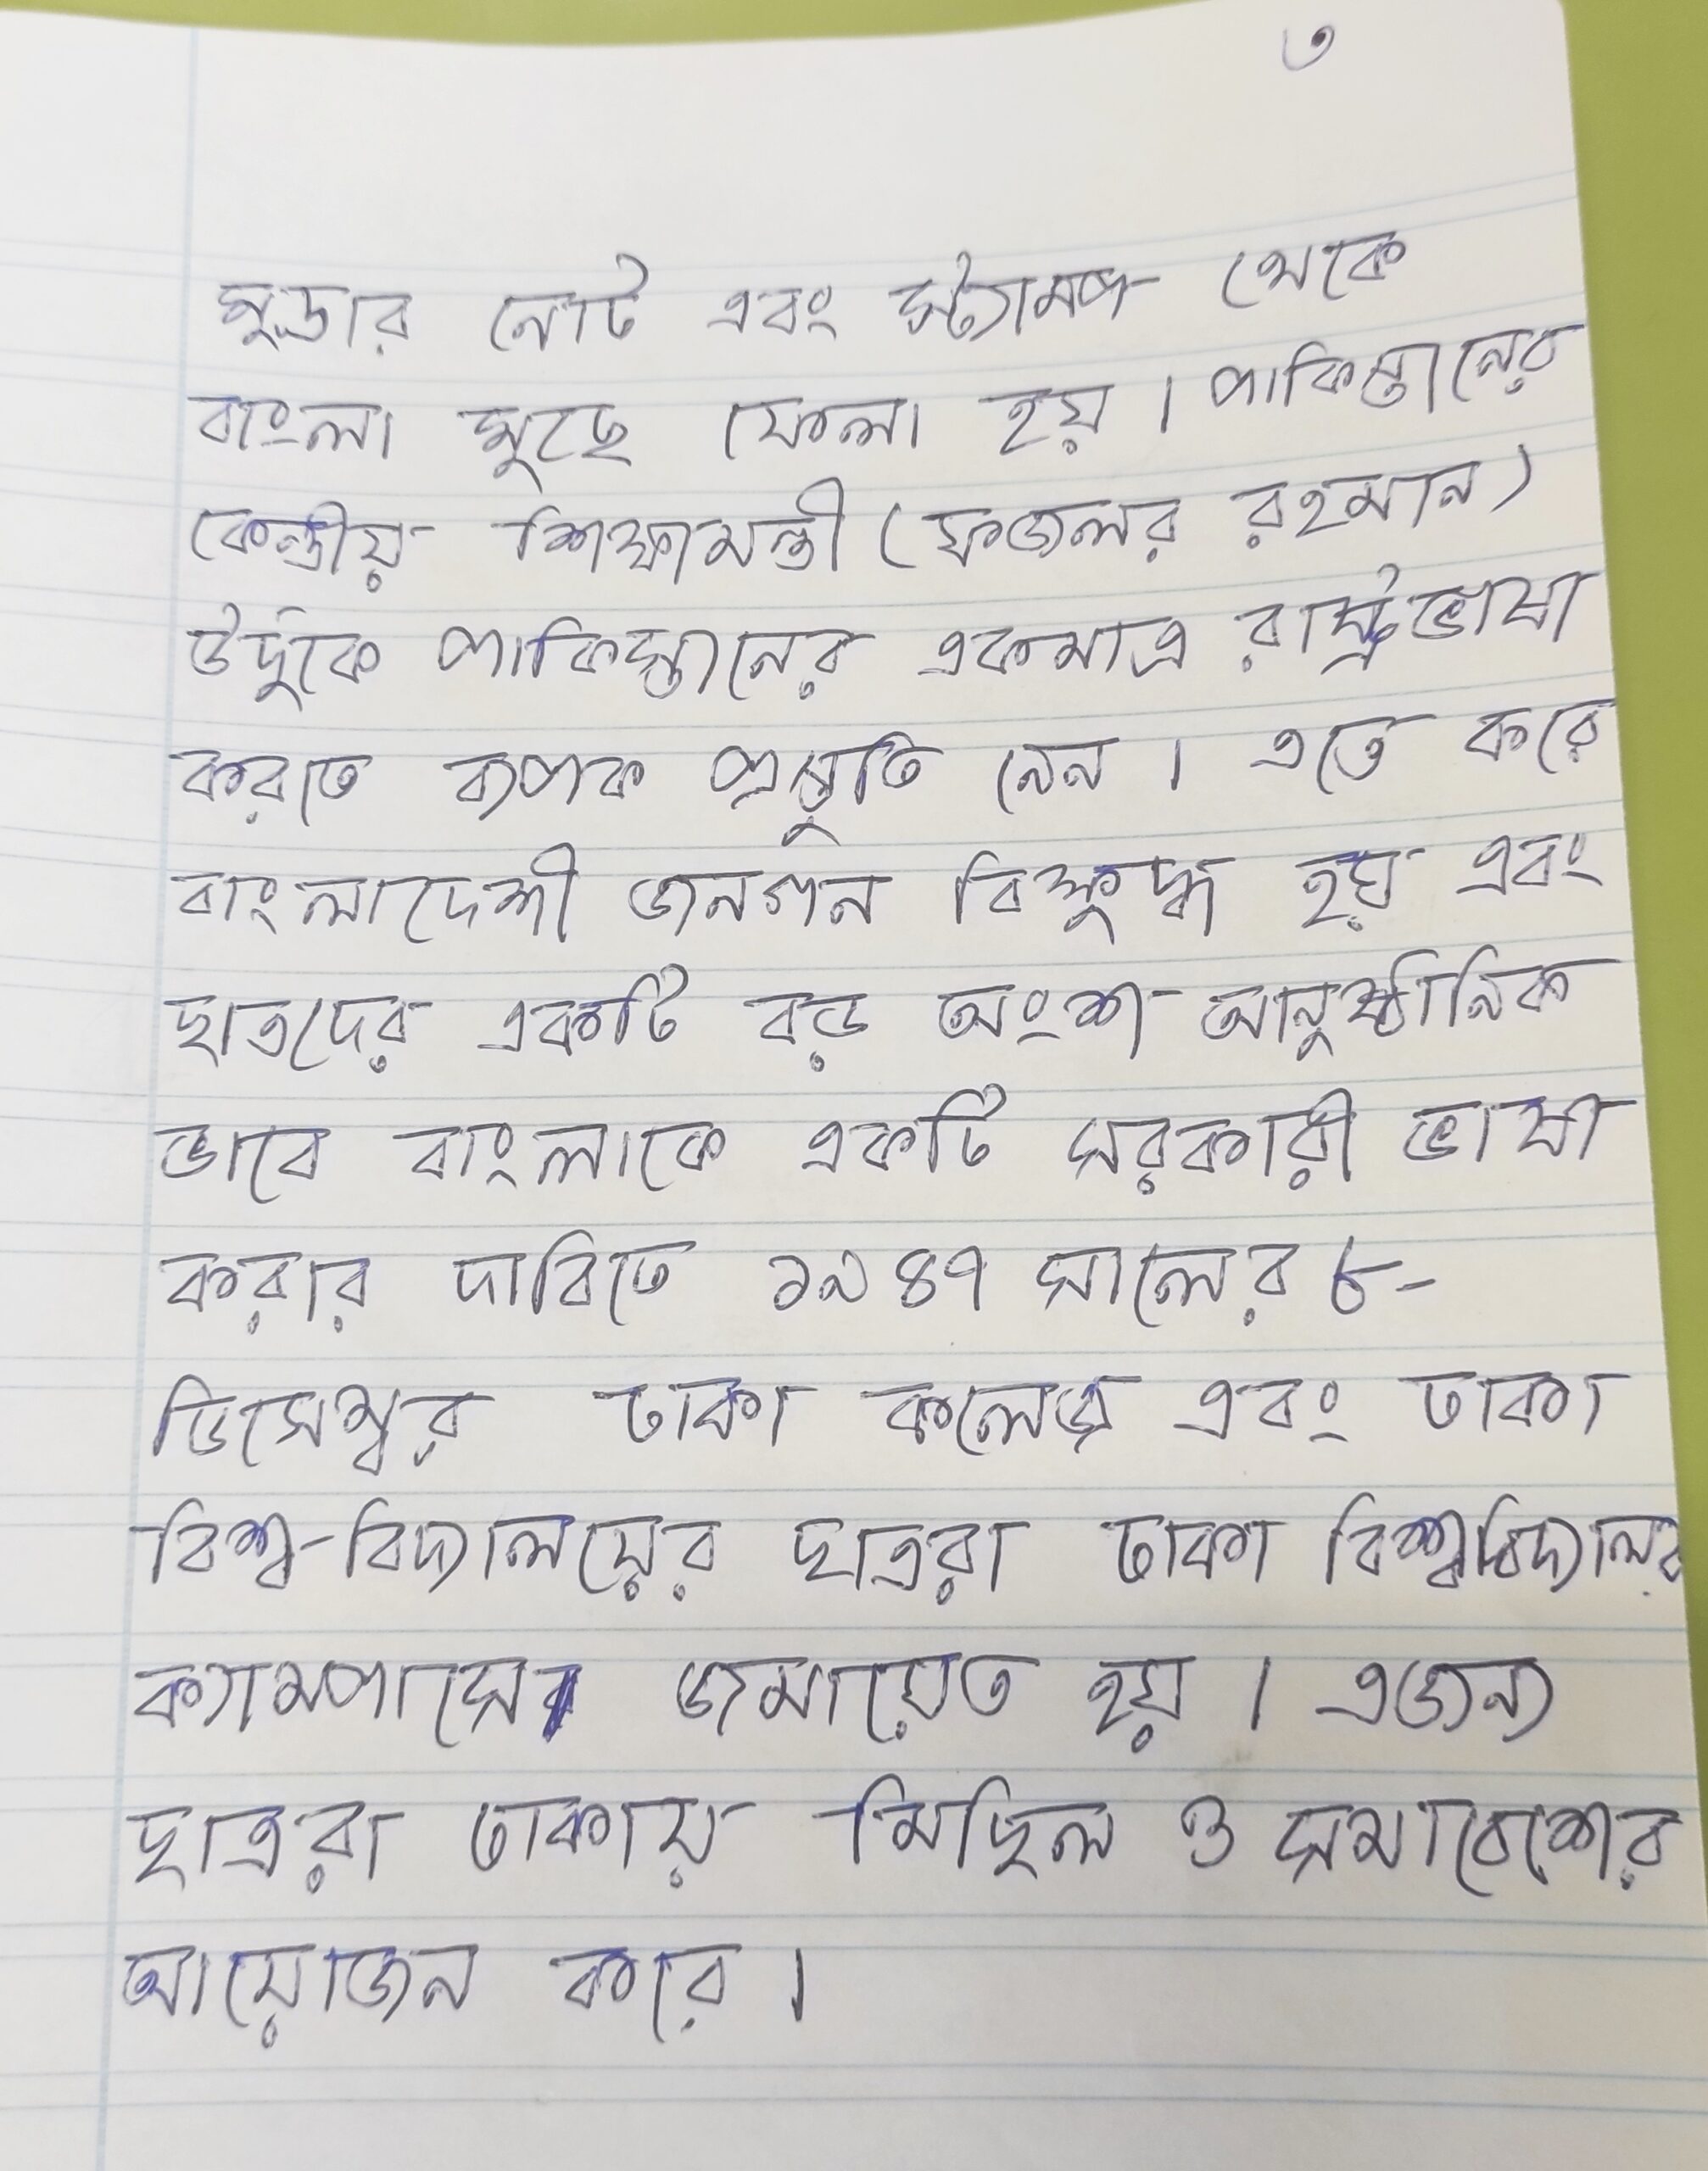 ৩
মুদ্রার নোট এবং স্ট্যাম্প থেকে
বাংলা মুছে ফেলা হয়। পাকিস্তানের
কেন্দ্রীয় শিক্ষামন্ত্রী (ফজলর রহমান)
উর্দুকে পাকিস্তানের একমাত্র রাষ্ট্রভাষা
করতে ব্যপক প্রস্তুতি নেন। এতে করে
বাংলাদেশী জনগন বিক্ষুদ্ধ হয় এবং
ছাত্রদের একটি বড় অংশ আনুষ্ঠানিক
ভাবে বাংলাকে একটি সরকারী ভাষা
করার দাবিতে ১৯৪৭ সালের ৮-
ডিসেম্বর ঢাকা কলেজ এবং ঢাকা
বিশ্ব-বিদ্যালয়ের ছাত্ররা ঢাকা বিশ্ববিদ্যালয়
ক্যাম্পাসে জমায়েত হয়। এজন্য
ছাত্ররা ঢাকায় মিছিল ও সমাবেশের
আয়োজন করে।